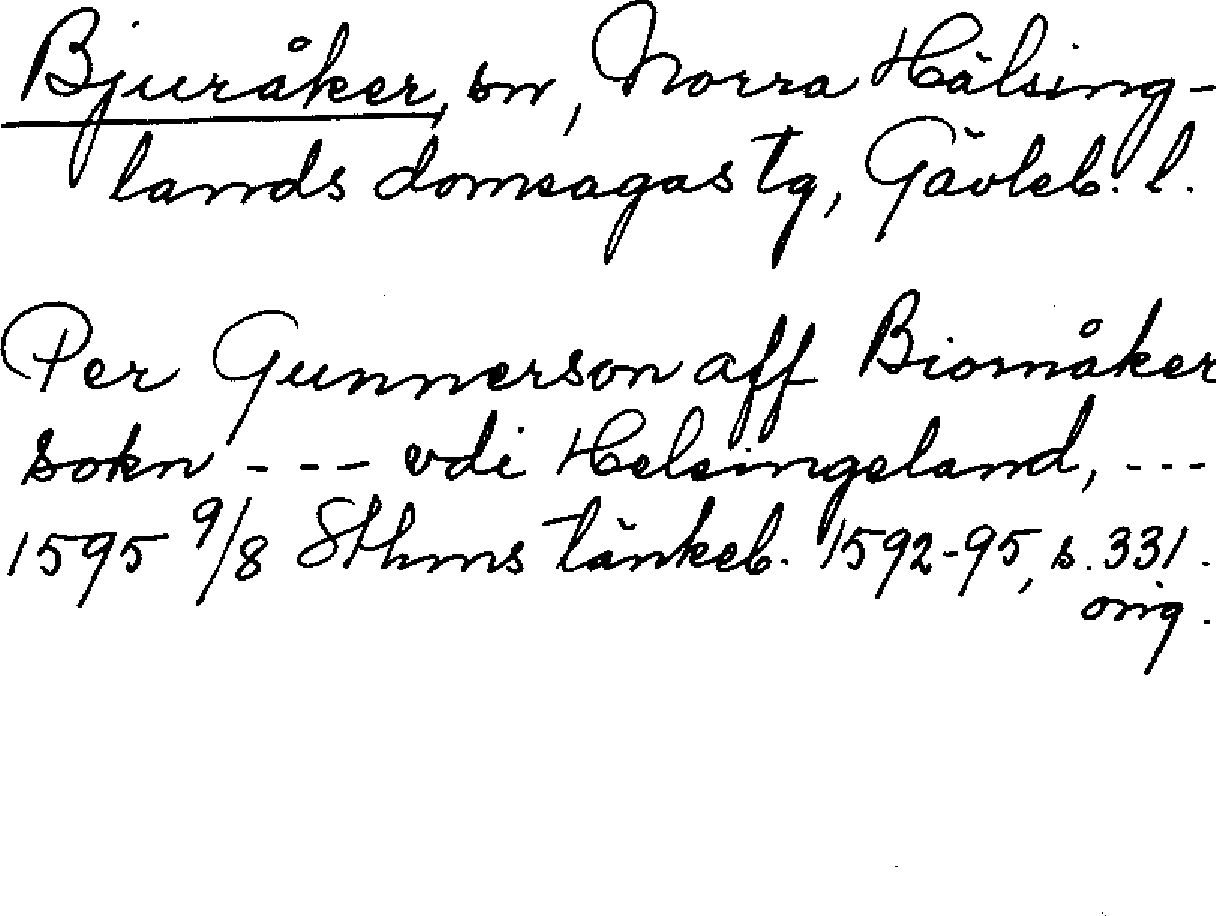 Bjuråker, sn, Norra Hälsing-
lands domsagas tg, Gävleb. l.
Per Gunnerson aff Biornåker
sokn --- vdi Helsingeland, ---
1595 9/8 Sthms tänkeb. 1592-95, s. 331.
orig.